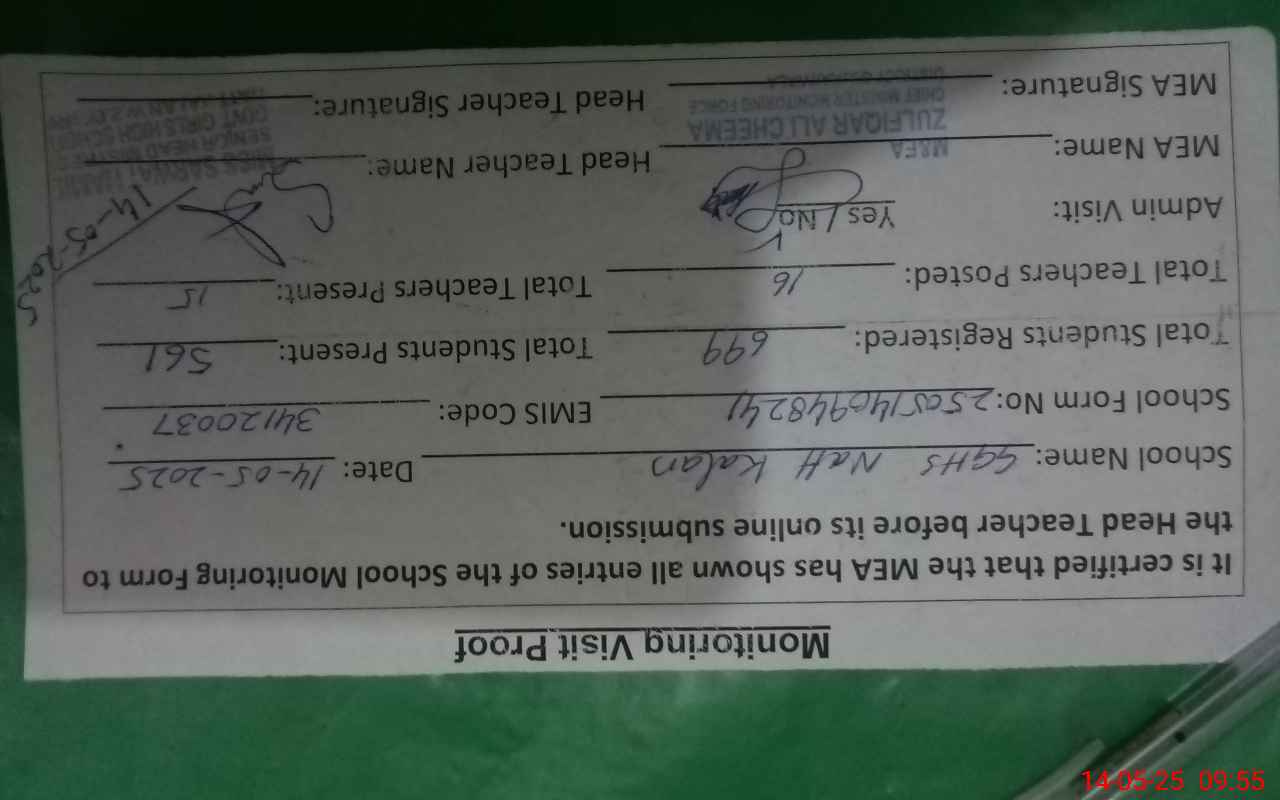 Monitoring Visit Proof
It is certified that the MEA has shown all entries of the School Monitoring Form to
the Head Teacher before its online submission.
School Name: GGHS Natt Kalan Date: 14-05-2025
School Form No: 2505140948241 EMIS Code: 34120037
Total Students Registered: 699 Total Students Present: 561
Total Teachers Posted: 16 Total Teachers Present: 15
Admin Visit: Yes / No
14-05-2025
MEA Name: Head Teacher Name:
M&EA
ZULFIQAR ALI CHEEMA
CHIEF MINISTER MONITORING FORCE
MEA Signature: Head Teacher Signature:
SENIOR HEAD
GOVT GIRLS HIGH SCHOOL
14-05-25 09:55